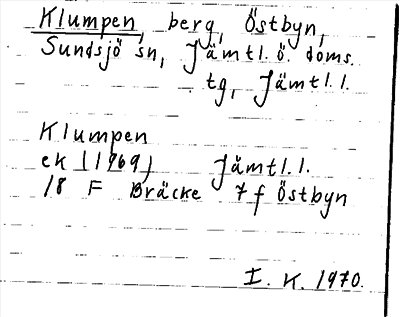 Klumpen, berg, Östbyn,
Sundsjö sn, Jämtl. ö. doms.
tg, Jämtl. l.
Klumpen
ek (1969) Jämtl. l.
18 F Bräcke 7 f Östbyn
I. K. 1970.